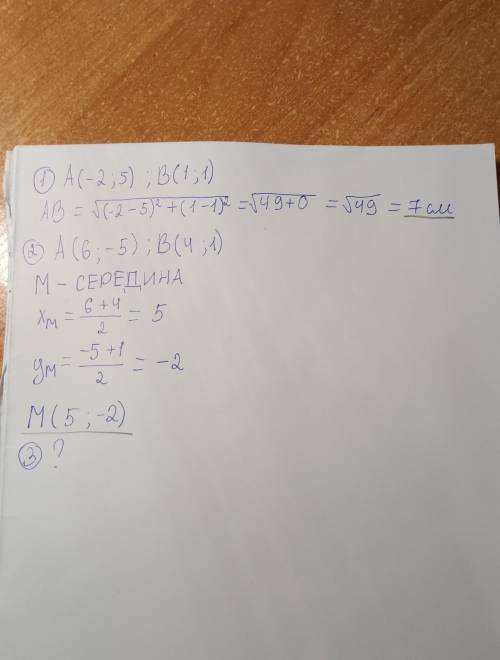 ① A(-2;5) ; B(1;1)
AB = √((-2-5)² + (1-1)²) = √(49+0) = √49 = 7 см
② A(6;-5) ; B(4;1)
M - СЕРЕДИНА
xм = (6+4)/2 = 5
yм = (-5+1)/2 = -2
M(5;-2)
③ ?